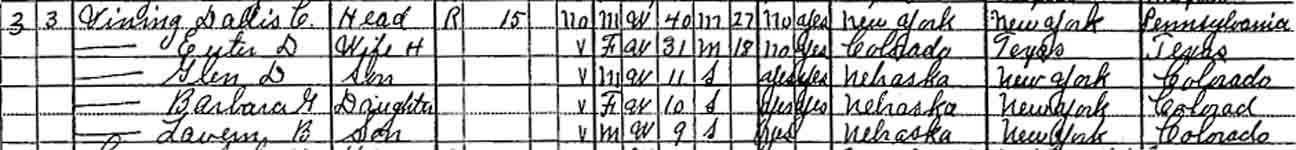 3 3 Vining Dallis C. Head R 15 No M W 40 M 27 No Yes New York New York Pennsylvania
— Ester D Wife H V F W 31 M 18 No Yes Colorado Texas Texas
— Glen D Son V M W 11 S Yes Yes Nebraska New York Colorado
— Barbara G Daughter V F W 10 S Yes Yes Nebraska New York Colorad
— Lavern B Son V M W 9 S Yes Nebraska New York Colorado